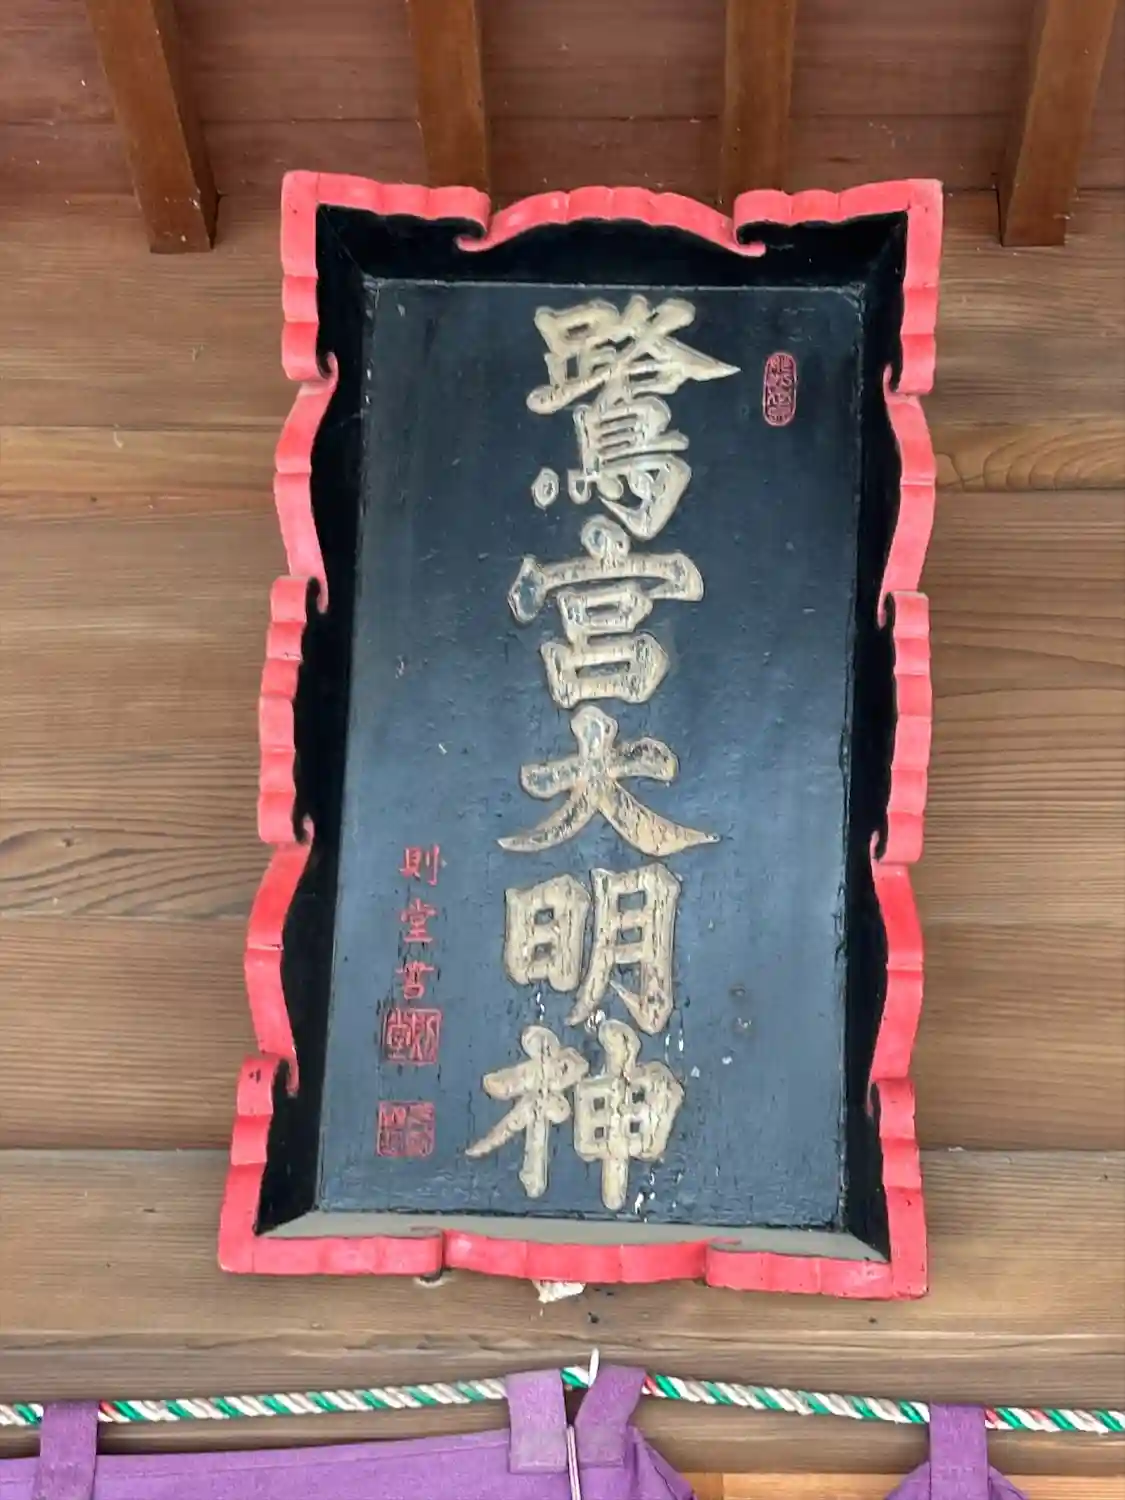 鷺宮大明神
則堂書